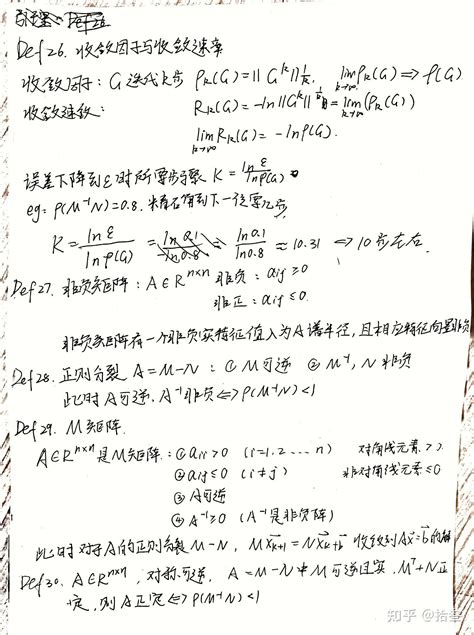 Def 26. 收敛因子与收敛速率
收敛因子: G 迭代k步 ρₖ(G)=||Gᵏ||^(1/k), lim_{k→∞} ρₖ(G) ⇒ ρ(G)
收敛速率: Rₖ(G) = -ln||Gᵏ||^(1/k) = lim_{k→∞}(ρₖ(G))
lim_{k→∞} Rₖ(G) = -lnρ(G).
误差下降到ε时所需步骤 K = lnε/lnρ(G)
eg: ρ(M⁻¹N)=0.8.
K = lnε/lnρ(G) = ln0.1/ln0.8 = ln0.1/ln0.8 ≈ 10.31 ⇔ 10步左右.
Def 27. 非负矩阵: A∈Rⁿˣⁿ 非负: aij ≥0
非正: aij ≤0.
非负矩阵有一个非负实特征值λ为A谱半径, 且相应特征向量非负
Def 28. 正则分裂 A=M-N: ① M可逆 ② M⁻¹, N 非负
此时 A可逆, A⁻¹非负 ⇔ ρ(M⁻¹N)<1
Def 29. M矩阵.
A∈Rⁿˣⁿ是M矩阵: ① aii>0 (i=1.2 ... n) 对角线元素>0
② aij≤0 (i≠j) 非对角线元素≤0
③ A可逆
④ A⁻¹≥0 (A⁻¹是非负阵)
此时 对于A的正则分裂 M-N, Mxₖ₊₁=Nxₖ+b 收敛到Ax=b的解
Def 30. A∈Rⁿˣⁿ, 对称可逆, A=M-N中M可逆且实, Mᵀ+N正
定, 则A正定⇔ρ(M⁻¹N)<1
知乎 @拾叁